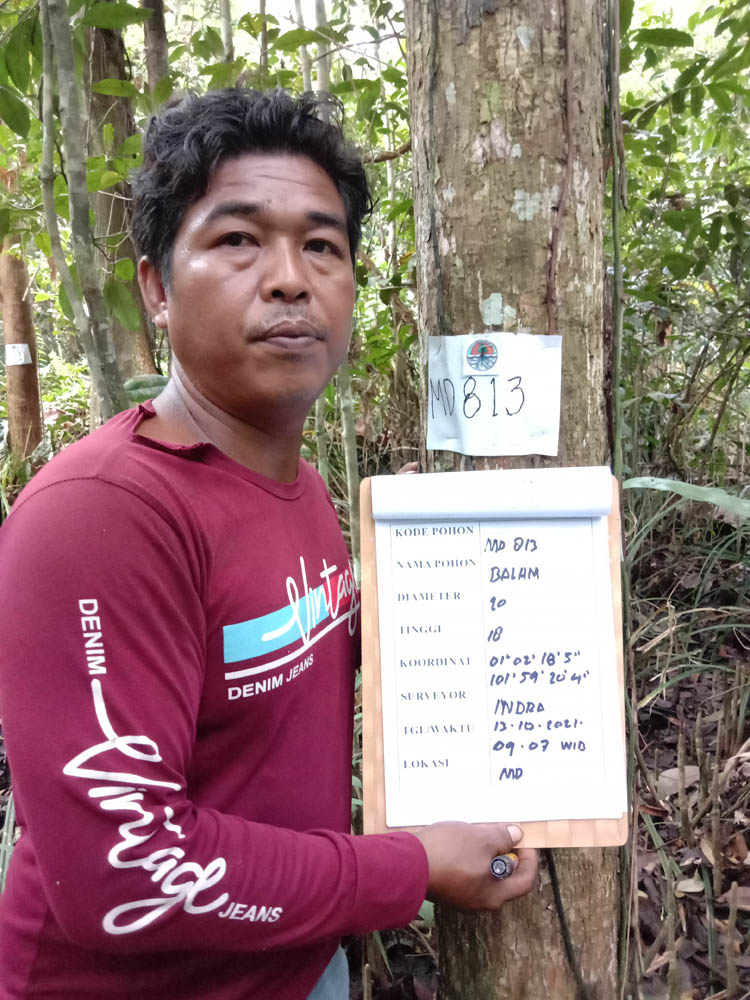 MD 813
KODE POHON MD 813
NAMA POHON BALAM
DIAMETER 20
TINGGI 18
KOORDINAT 01° 02' 18'5"
101° 59' 20'4"
SURVEYOR INDRA
TGL/WAKTU 13.10.2021.
09.07 WID
LOKASI MD
Vintage
DENIM JEANS
DENIM
Vintage
JEANS